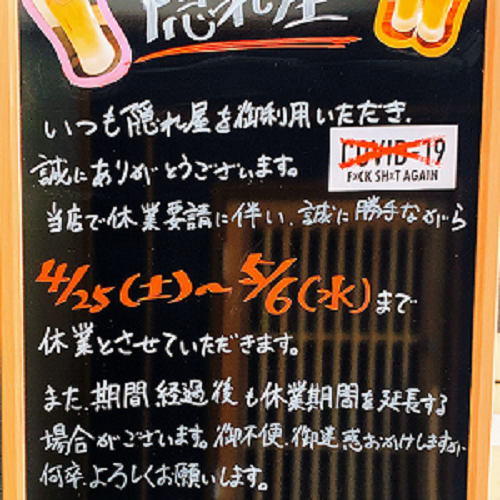 隠れ屋
いつも隠れ屋を御利用いただき、
誠にありがとうございます。
COVID-19
F×CK SH×T AGAIN
当店で休業要請に伴い、誠に勝手ながら
4/25(土)~5/6(水)まで
休業とさせていただきます。
また、期間経過後も休業期間を延長する
場合がございます。御不便、御迷惑おかけしますが、
何卒、よろしくお願いします。